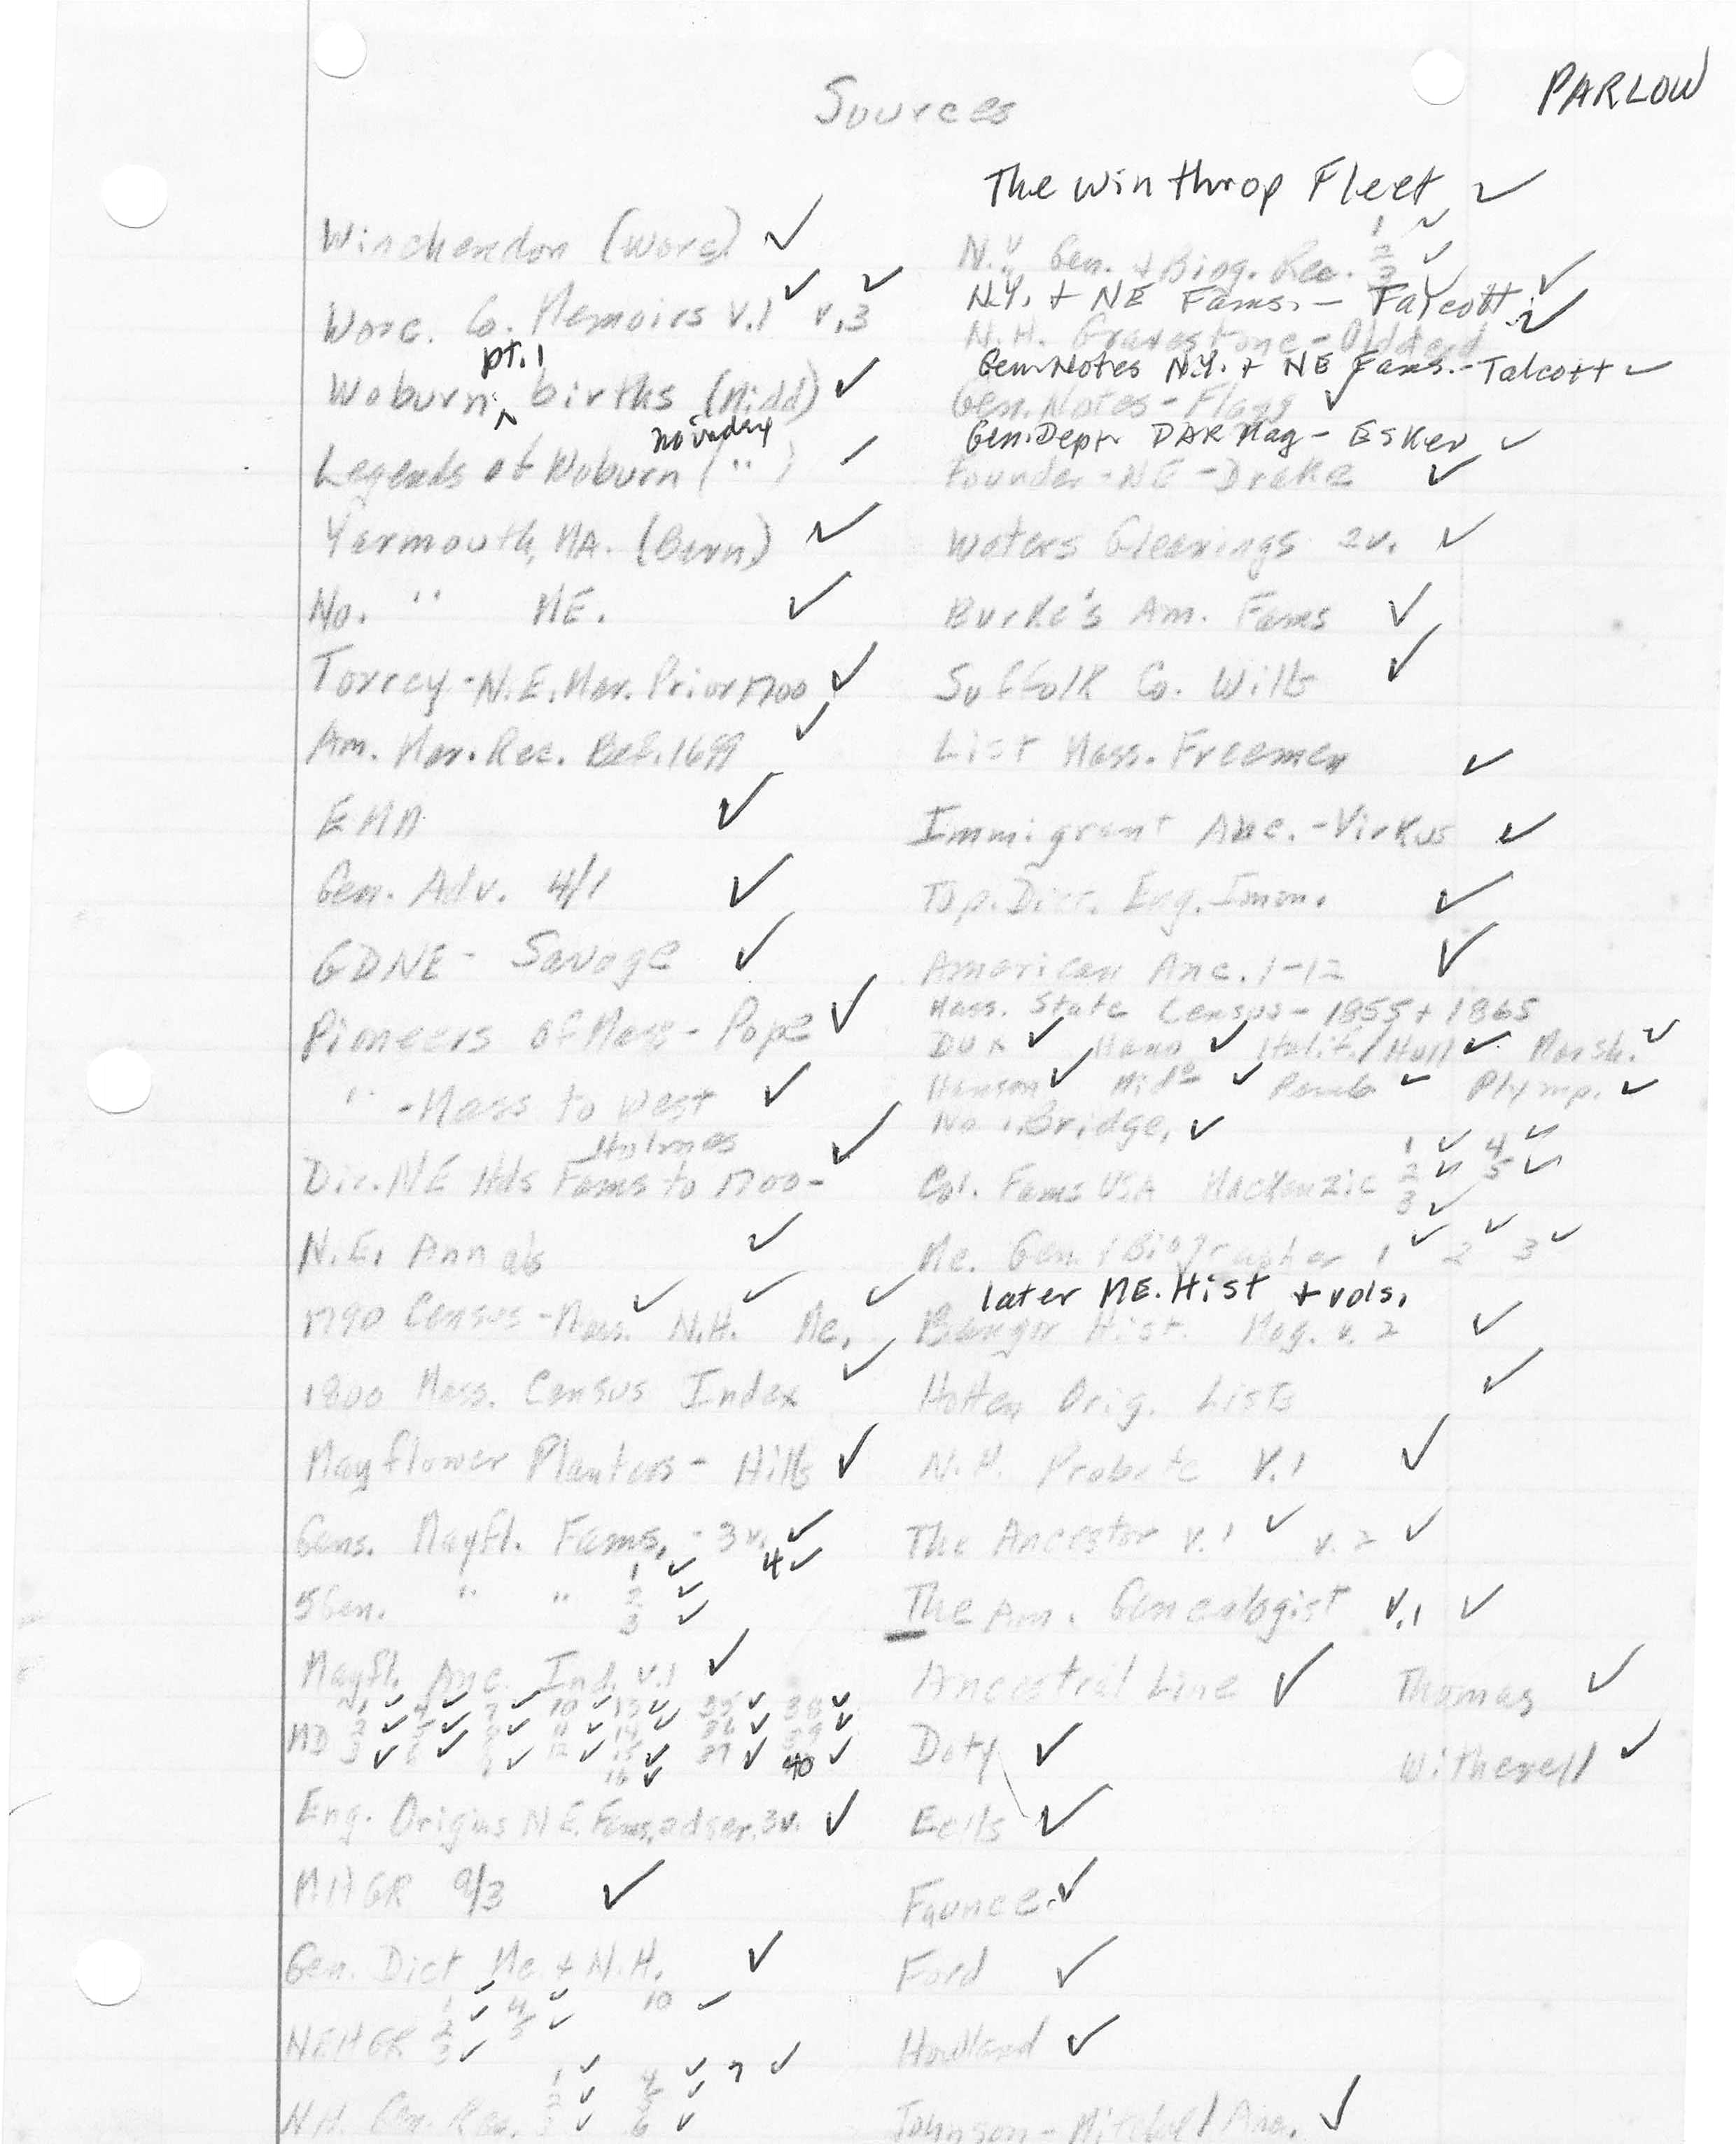 PARLOW
Sources
Winchendon (Worc) ✓
Worc. Co. Memoirs v.1 ✓ v.3 ✓
pt. 1
Woburn births (Midd) ✓
no index
Legends of Woburn ( " ) ✓
Yarmouth, MA. (Barn) ✓
No. " ME. ✓
Torrey - N.E. Mar. Prior 1700 ✓
Am. Mar. Rec. Bef. 1699 ✓
EMD ✓
Gen. Adv. 4/1 ✓
GDNE - Savage ✓
Pioneers of Mass - Pope ✓
" - Mass to West ✓
Holmes
Dir. NE Hds Fams to 1700 - ✓
N.E. Annals ✓
1790 Census - Mass. ✓ N.H. ✓ Me. ✓
1800 Mass. Census Index ✓
Mayflower Planters - Hills ✓
Gens. Mayfl. Fams. - 3v. ✓ 4 ✓
5 Gen. " " 1 ✓ 2 ✓ 3 ✓
Mayfl. Anc. Ind. v.1 ✓
1 ✓ 4 ✓ 7 ✓ 10 ✓ 13 ✓ 35 ✓ 38 ✓
MD 2 ✓ 5 ✓ 8 ✓ 11 ✓ 14 ✓ 36 ✓ 39 ✓
3 ✓ 6 ✓ 9 ✓ 12 ✓ 15 ✓ 37 ✓ 40 ✓
16 ✓
Eng. Origins N.E. Fams, 2d ser. 3v. ✓
MHGR 9/3 ✓
Gen. Dict Me. + N.H. ✓
NEHGR 1 ✓ 2 ✓ 3 ✓ 4 ✓ 5 ✓ 10 ✓
N.H. Gen. Rec. 1 ✓ 2 ✓ 3 ✓ 4 ✓ 5 ✓ 6 ✓ 7 ✓
The Winthrop Fleet ✓
N.Y. Gen. + Biog. Rec. 1 ✓ 2 ✓ 3 ✓
N.Y. + NE Fams. - Talcott ✓
N.H. Gravestone - Oldford ✓
Gen. Notes N.Y. + NE Fams. - Talcott ✓
Gen. Notes - Flagg ✓
Gen. Dept. DAR Mag - Esker ✓
Founder - NE - Drake ✓
Waters Gleanings 2v. ✓
Burke's Am. Fams ✓
Suffolk Co. Wills ✓
List Mass. Freemen ✓
Immigrant Anc. - Virkus ✓
Top. Dict. Eng. Imm. ✓
American Anc. 1-12 ✓
Mass. State Census - 1855 + 1865
Dux ✓ Hano ✓ Halif./Hull ✓ Marsh. ✓
Hanson ✓ Mid° ✓ Pemb ✓ Plymp. ✓
No. Bridge. ✓
Col. Fams USA Mackenzie 1 ✓ 2 ✓ 3 ✓ 4 ✓ 5 ✓
Me. Gen. + Biographer 1 ✓ 2 ✓ 3 ✓
later ME. Hist + vols.
Bangor Hist. Mag. v. 2 ✓
Hotten Orig. Lists ✓
N.H. Probate v.1 ✓
The Ancestor v.1 ✓ v.2 ✓
The Am. Genealogist v.1 ✓
Ancestral Line ✓ Thomas ✓
Doty ✓ Witherell ✓
Eells ✓
Faunce ✓
Ford ✓
Howland ✓
Johnson - Mitchel/Anc. ✓